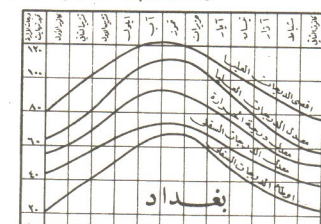 كانون الثاني
شباط
آذار
نيسان
أيار
حزيران
تموز
آب
ايلول
تشرين الاول
تشرين الثاني
كانون الاول
١٢٠
١٠٠
٨٠
٦٠
٤٠
٢٠
اقصى الدرجات العليا
معدل الدرجات العليا
معدل درجة الحرارة
معدل الدرجات السفلى
اوطأ الدرجات السفلى
بغداد